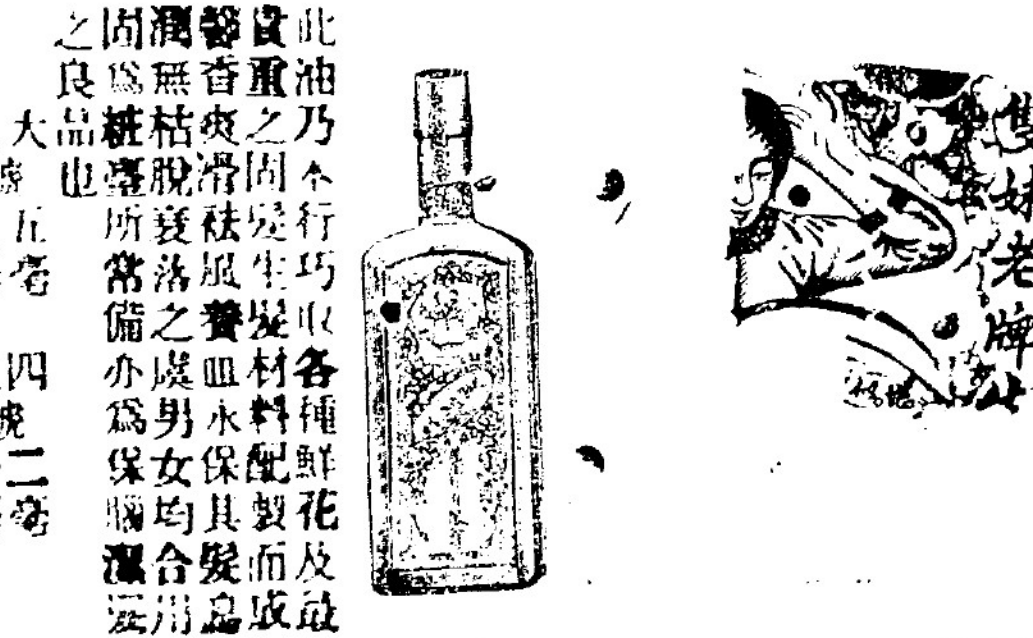 雙妹老牌
此油乃本行巧取各種鮮花及最
貴重之固髮生髮材料配製而成
馨香爽滑袪風養血永保其髮
潤無枯脫衰落之虞男女均合用
固為粧臺所常備亦為保腦潔髮
之良品也
大 五毫 四 二毫
號 號